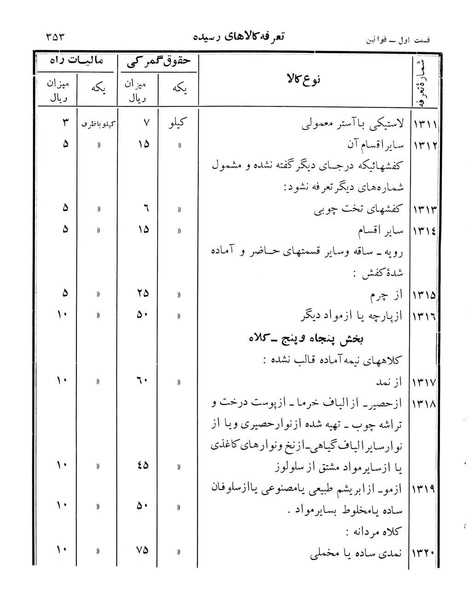 قسمت اول ــ قوانین
تعرفه کالاهای رسیده
۳۵۳
شمارهٔ تعرفه
نوع کالا
حقوق گمرکی
مالیات راه
یکه
میزان ریال
یکه
میزان ریال
۱۳۱۱ لاستیکی با آستر معمولی کیلو ۷ کیلو باظرف ۳
۱۳۱۲ سایر اقسام آن » ۱۵ » ۵
کفشهائیکه درجای دیگر گفته نشده و مشمول
شماره‌های دیگر تعرفه نشود:
۱۳۱۳ کفشهای تخت چوبی » ۶ » ۵
۱۳۱۴ سایر اقسام » ۱۵ » ۵
رویه ـ ساقه وسایر قسمتهای حاضر و آماده
شدهٔ کفش :
۱۳۱۵ از چرم » ۲۵ » ۵
۱۳۱۶ ازپارچه یا ازمواد دیگر » ۵۰ » ۱۰
بخش پنجاه و پنج ـ کلاه
کلاههای نیمه آماده قالب نشده :
۱۳۱۷ از نمد » ۶۰ » ۱۰
۱۳۱۸ ازحصیر ـ از الیاف خرما ـ ازپوست درخت و
تراشه چوب ـ تهیه شده ازنوارحصیری ویا از
نوارسایر الیاف گیاهی ـ ازنخ ونوارهای کاغذی
یا ازسایر مواد مشتق از سلولوز » ۴۵ » ۱۰
۱۳۱۹ ازمو ـ ازابریشم طبیعی یامصنوعی یا ازسلوفان
ساده یامخلوط بسایرمواد . » ۵۰ » ۱۰
کلاه مردانه :
۱۳۲۰ نمدی ساده یا مخملی » ۷۵ » ۱۰